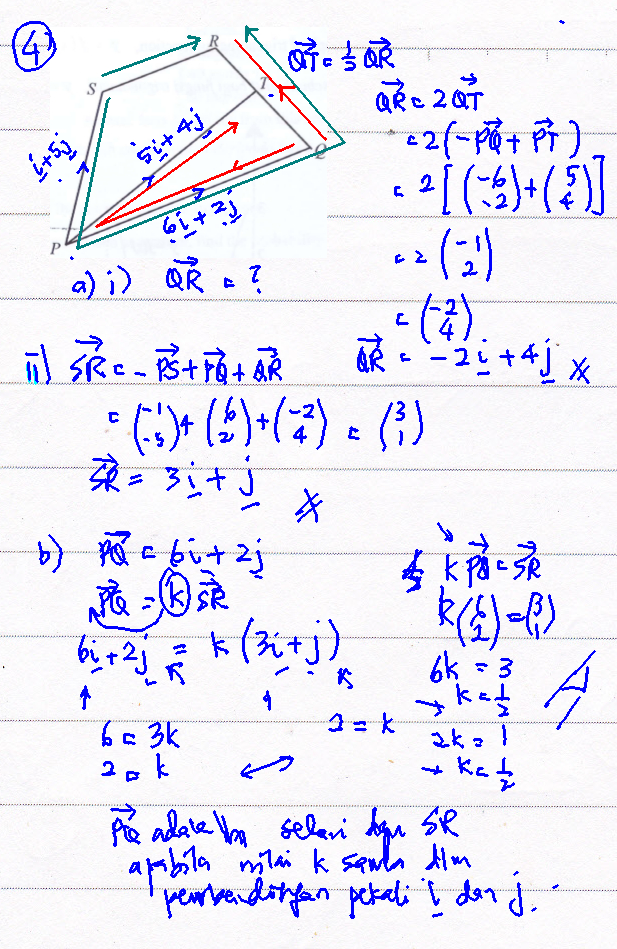 4
R
S
T
Q
P
i + 5j
5i + 4j
6i + 2j
QT = ½ QR
QR = 2QT
= 2(-PQ + PT)
= 2[(-6 -2) + (5 4)]
= 2(-1 2)
= (-2 4)
QR = -2i + 4j
a) i) QR = ?
ii) SR = -PS + PQ + QR
= (-1 -5) + (6 2) + (-2 4) = (3 1)
SR = 3i + j
b) PQ = 6i + 2j
PQ = k SR
6i + 2j = k(3i + j)
6 = 3k
2 = k
2 = k
k PQ = SR
k(6 2) = (3 1)
6k = 3
→ k = ½
2k = 1
→ k = ½
PQ adalah selari dgn SR
apabila nilai k sama dlm
pembandingan pekali i dan j.